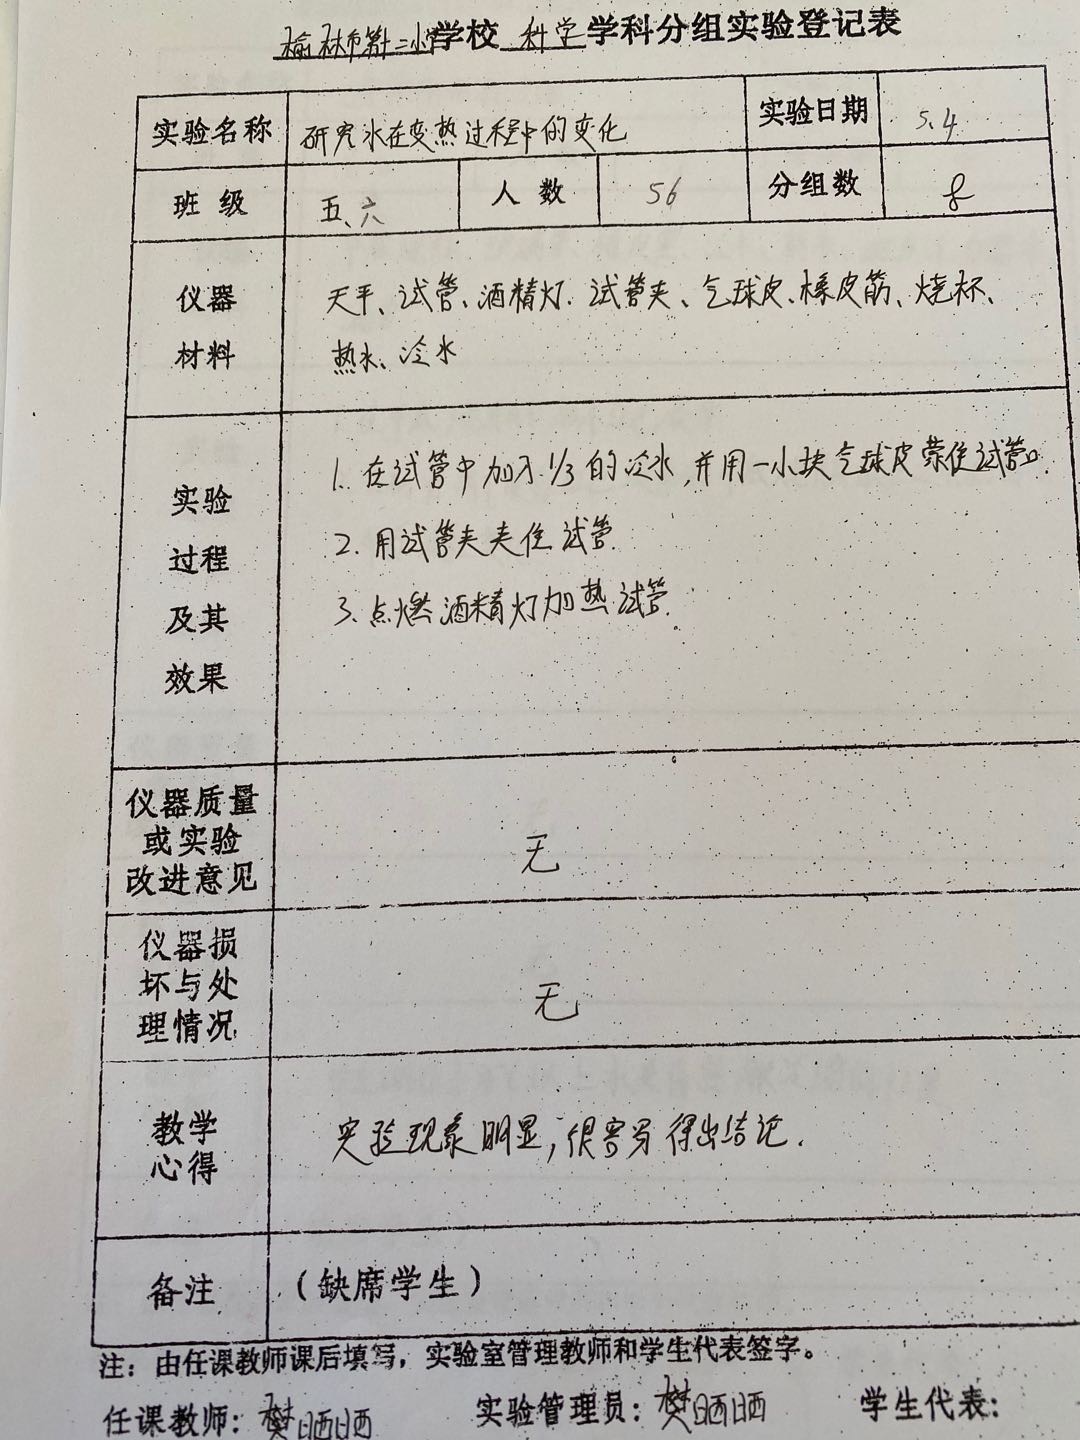 榆林市第十二小学学校 科学 学科分组实验登记表
实验名称 研究水在变热过程中的变化 实验日期 5.4
班级 五、六 人数 56 分组数 8
仪器 天平、试管、酒精灯.试管夹、气球皮、橡皮筋、烧杯、
材料 热水、冷水
实验 1.在试管中加入1/3的冷水,并用一小块气球皮蒙住试管口.
过程 2.用试管夹夹住试管.
及其 3.点燃酒精灯加热试管.
效果
仪器质量
或实验
改进意见 无
仪器损
坏与处
理情况 无
教学
心得 实验现象明显,很容易得出结论.
备注 (缺席学生)
注:由任课教师课后填写,实验室管理教师和学生代表签字。
任课教师:樊晒晒 实验管理员:樊晒晒 学生代表: